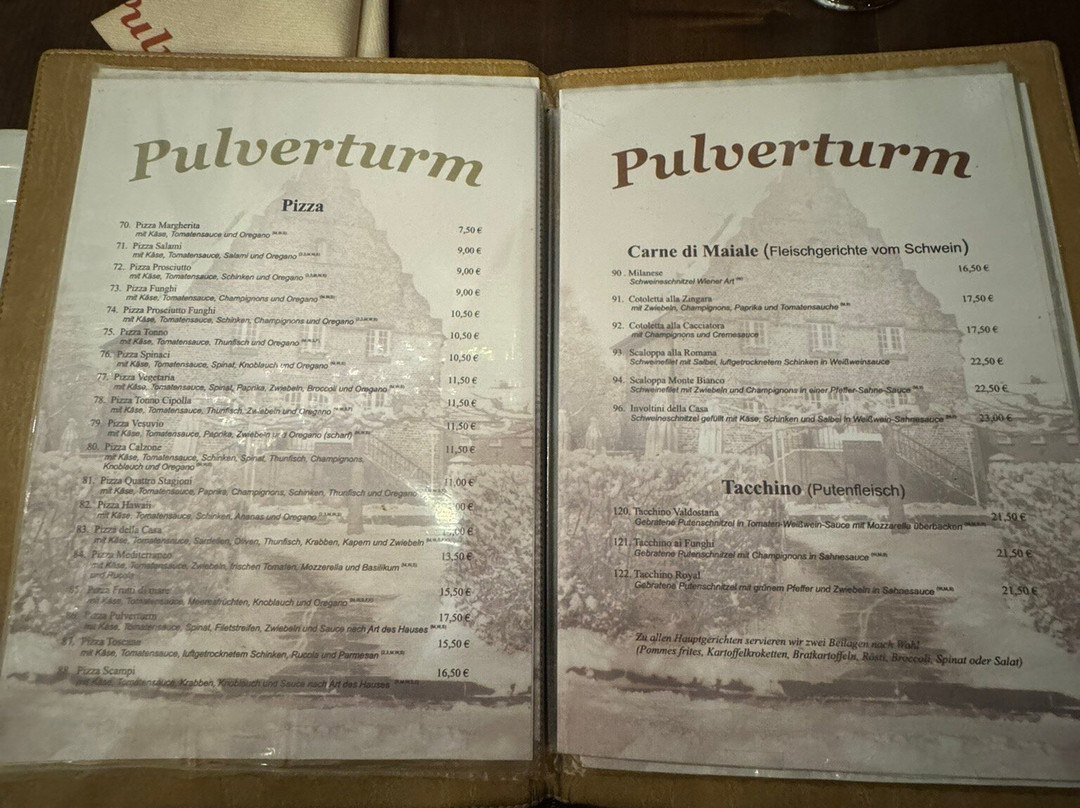 Pulverturm
Pizza
70. Pizza Margherita 7,50 €
mit Käse, Tomatensauce und Oregano
71. Pizza Salami 9,00 €
mit Käse, Tomatensauce, Salami und Oregano
72. Pizza Prosciutto 9,00 €
mit Käse, Tomatensauce, Schinken und Oregano
73. Pizza Funghi 9,00 €
mit Käse, Tomatensauce, Champignons und Oregano
74. Pizza Prosciutto Funghi 10,50 €
mit Käse, Tomatensauce, Schinken, Champignons und Oregano
75. Pizza Tonno 10,50 €
mit Käse, Tomatensauce, Thunfisch und Oregano
76. Pizza Spinaci 10,50 €
mit Käse, Tomatensauce, Spinat, Knoblauch und Oregano
77. Pizza Vegetaria 11,50 €
mit Käse, Tomatensauce, Spinat, Paprika, Zwiebeln, Broccoli und Oregano
78. Pizza Tonno Cipolla 11,50 €
mit Käse, Tomatensauce, Thunfisch, Zwiebeln und Oregano
79. Pizza Vesuvio 11,50 €
mit Käse, Tomatensauce, Paprika, Zwiebeln und Oregano (scharf)
80. Pizza Calzone 11,50 €
mit Käse, Tomatensauce, Schinken, Spinat, Thunfisch, Champignons,
Knoblauch und Oregano
81. Pizza Quattro Stagioni 11,00 €
mit Käse, Tomatensauce, Paprika, Champignons, Schinken, Thunfisch und Oregano
82. Pizza Hawaii ,00 €
mit Käse, Tomatensauce, Schinken, Ananas und Oregano
83. Pizza della Casa ,00 €
mit Käse, Tomatensauce, Sardellen, Oliven, Thunfisch, Krabben, Kapern und Zwiebeln
84. Pizza Mediterraneo 13,50 €
mit Käse, Tomatensauce, Zwiebeln, frischen Tomaten, Mozzarella und Basilikum
und Rucola
Pizza Frutti di mare 15,50 €
mit Käse, Tomatensauce, Meeresfrüchten, Knoblauch und Oregano
Pizza Pulverturm 17,50 €
mit Käse, Tomatensauce, Spinat, Filetstreifen, Zwiebeln und Sauce nach Art des Hauses
87. Pizza Toscana 15,50 €
mit Käse, Tomatensauce, luftgetrocknetem Schinken, Rucola und Parmesan
88. Pizza Scampi 16,50 €
mit Käse, Tomatensauce, Krabben, Knoblauch und Sauce nach Art des Hauses
Pulverturm
Carne di Maiale (Fleischgerichte vom Schwein)
90 . Milanese 16,50 €
Schweineschnitzel Wiener Art
91. Cotoletta alla Zingara 17,50 €
mit Zwiebeln, Champignons, Paprika und Tomatensauche
92. Cotoletta alla Cacciatora 17,50 €
mit Champignons und Cremesauce
93. Scaloppa alla Romana 22,50 €
Schweinefilet mit Salbei, luftgetrocknetem Schinken in Weißweinsauce
94. Scaloppa Monte Bianco 22,50 €
Schweinefilet mit Zwiebeln und Champignons in einer Pfeffer-Sahne-Sauce
96. Involtini della Casa 23,00 €
Schweineschnitzel gefüllt mit Käse, Schinken und Salbei in Weißwein-Sahnesauce
Tacchino (Putenfleisch)
120. Tacchino Valdostana 21,50 €
Gebratene Putenschnitzel in Tomaten-Weißwein-Sauce mit Mozzarella überbacken
121. Tacchino ai Funghi 21,50 €
Gebratene Putenschnitzel mit Champignons in Sahnesauce
122. Tacchino Royal 21,50 €
Gebratene Putenschnitzel mit grünem Pfeffer und Zwiebeln in Sahnesauce
Zu allen Hauptgerichten servieren wir zwei Beilagen nach Wahl
(Pommes frites, Kartoffelkroketten, Bratkartoffeln, Rösti, Broccoli, Spinat oder Salat)